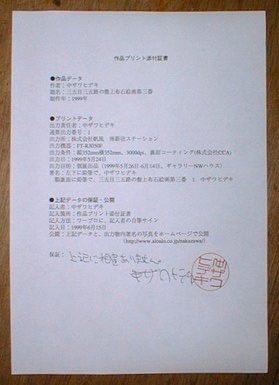 作品プリント添付証書
●作品データ
作者:中ザワヒデキ
題名:三五目三五路の盤上布石絵画第三番
制作年:1999年
●プリントデータ
出力責任者:中ザワヒデキ
通算出力番号:1
出力機器:FT-R3050F
出力日:1999年5月24日
出力目的:個展出品(1999年5月26日-6月14日、ギャラリーNWハウス)
署名:左下に鉛筆で、中ザワヒデキ
裏面に鉛筆で、三五目三五路の盤上布石絵画第三番 1 中ザワヒデキ
●上記データの保証・公開
記入者:中ザワヒデキ
記入箇所:作品プリント添付証書
記入方法:ワープロに、記入者の自筆サイン
記入日:1999年6月15日
公開:上記データと、出力物内署名の写真をホームページで公開
(http://www.aloalo.co.jp/nakazawa/)
保証:上記に相違ありません
中ザワヒデキ